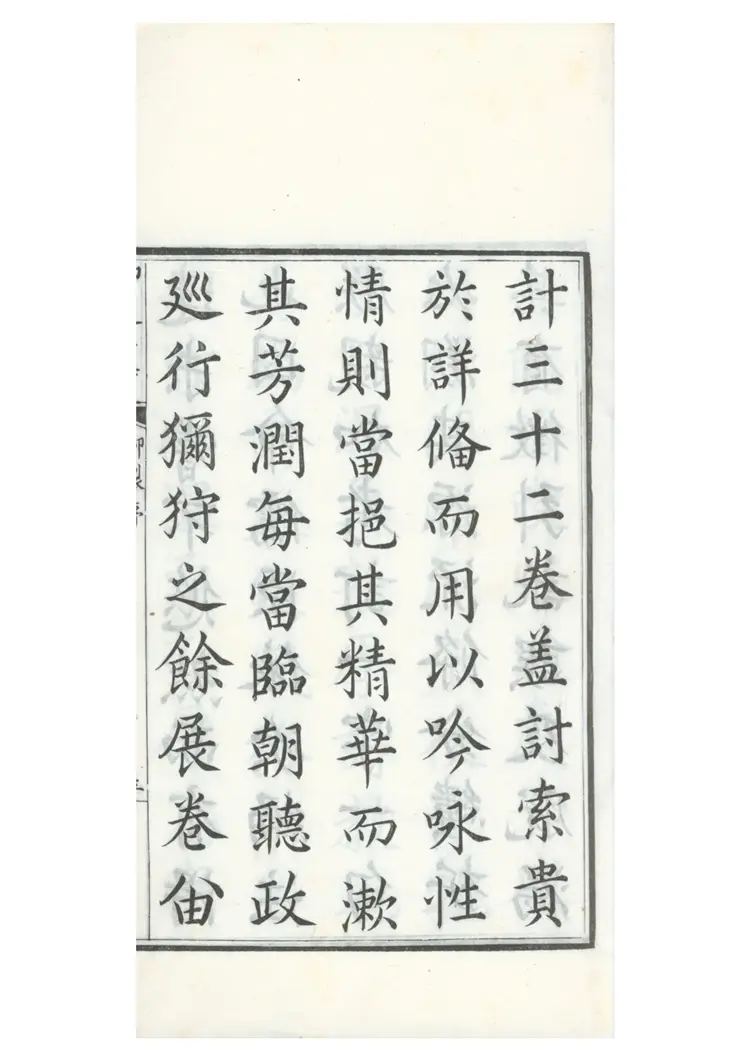 計三十二卷盖討索貴
於詳備而用以吟咏性
情則當挹其精華而漱
其芳潤每當臨朝聽政
廵行獮狩之餘展卷
御製序